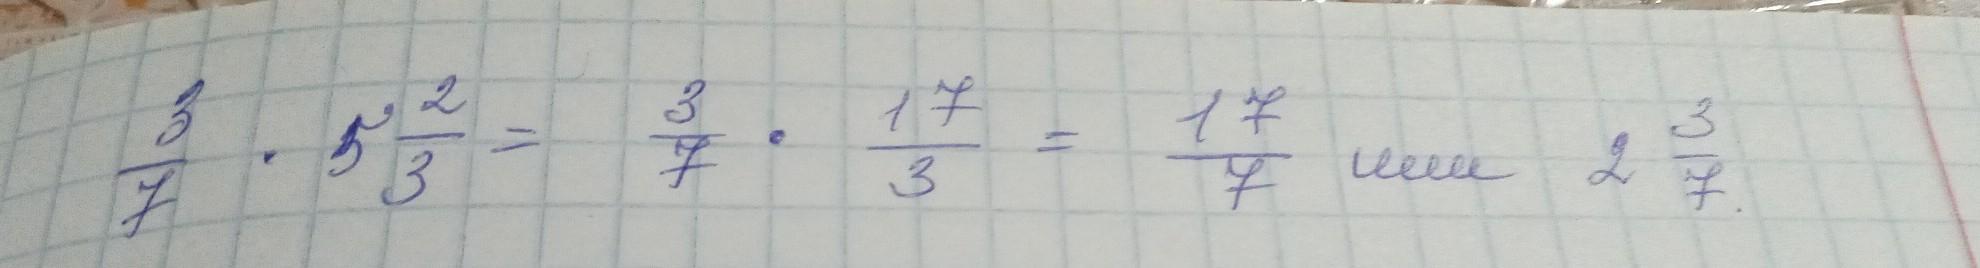 3/7 · 5 2/3 = 3/7 · 17/3 = 17/7 или 2 3/7.